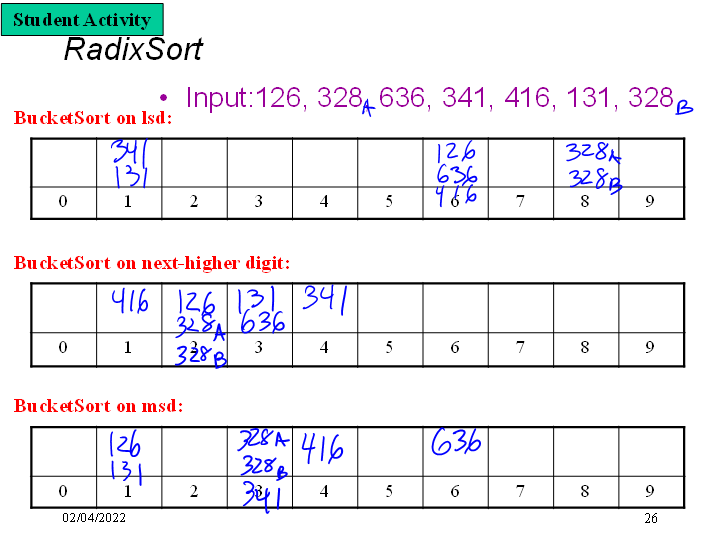 Student Activity
RadixSort
• Input:126, 328A 636, 341, 416, 131, 328B
BucketSort on lsd:
341 126 328A
131 636 328B
416
0 1 2 3 4 5 6 7 8 9
BucketSort on next-higher digit:
416 126 131 341
328A 636
328B
0 1 2 3 4 5 6 7 8 9
BucketSort on msd:
126 328A 416 636
131 328B
341
0 1 2 3 4 5 6 7 8 9
02/04/2022 26